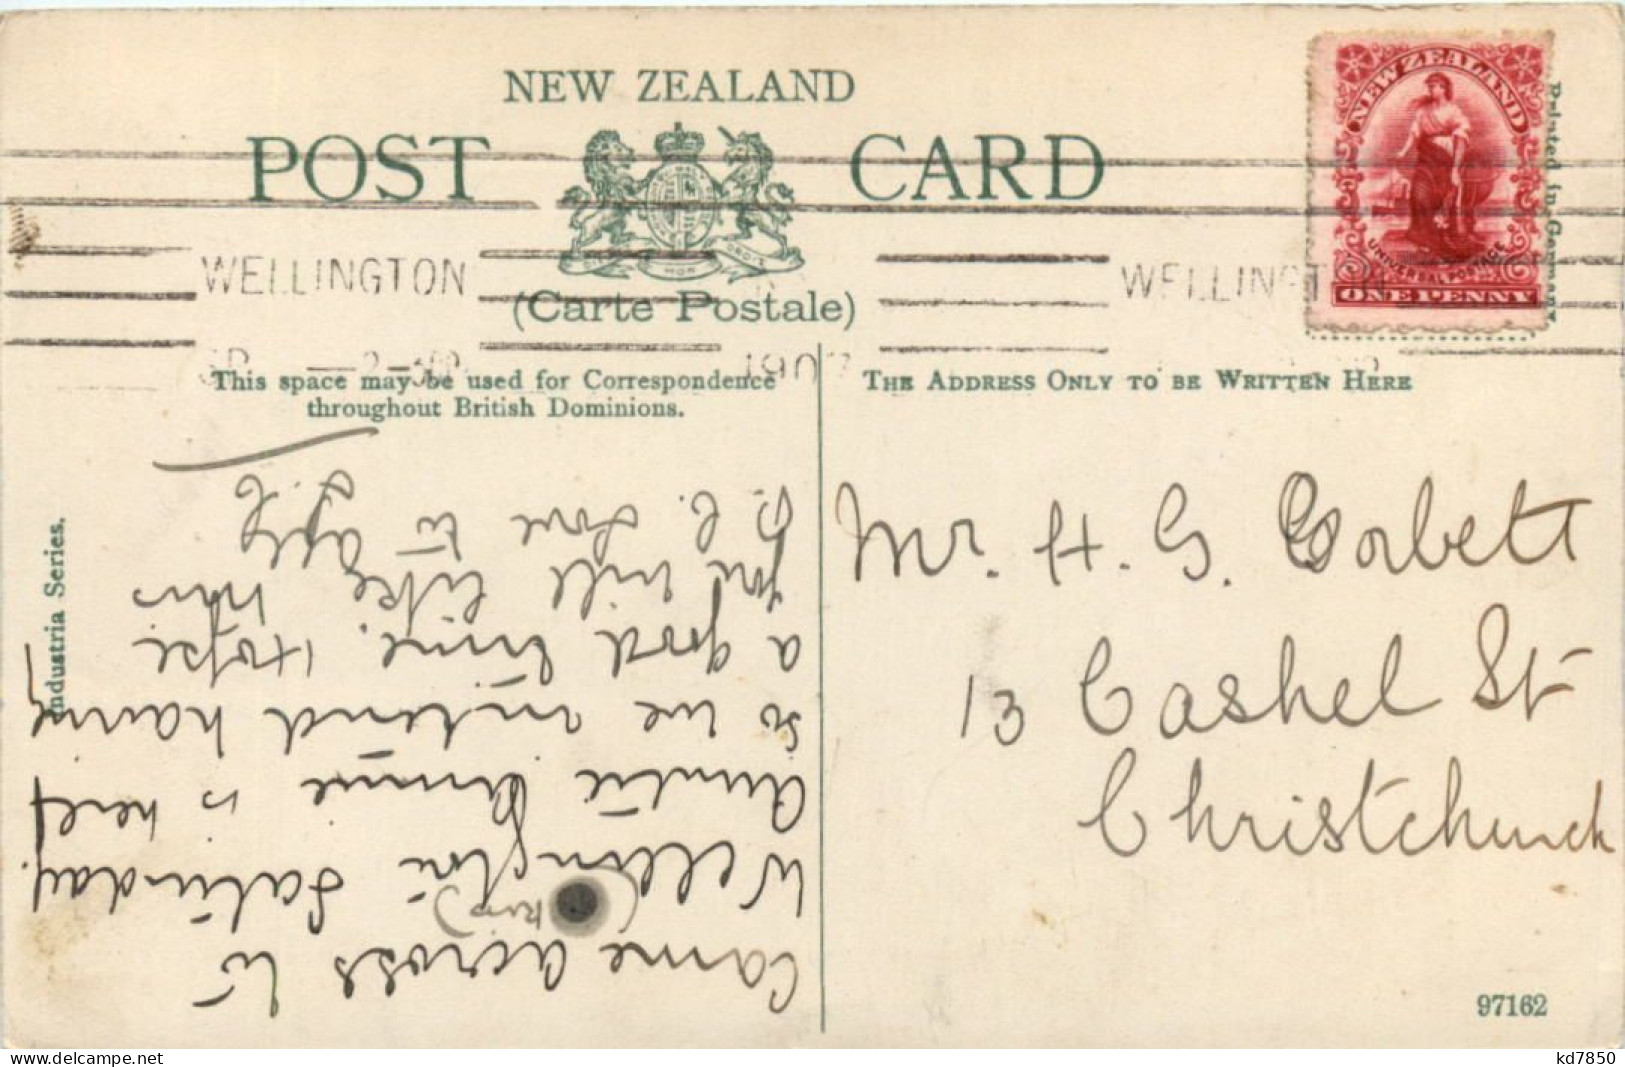 NEW ZEALAND
POST CARD
DIEU ET MON DROIT
(Carte Postale)
WELLINGTON
WELLINGTON
2-30
1907
NEW ZEALAND
UNIVERSAL POSTAGE
ONE PENNY
Printed in Germany
This space may be used for Correspondence
throughout British Dominions.
THE ADDRESS ONLY TO BE WRITTEN HERE
Industria Series.
Came across to
(Kiss)
Wellington Saturday.
Auntie Minnie is here
so we intend having
a good time. Hope
you will like this
P.C. Love to
Mr. H. G. Corbett
13 Cashel St
Christchurch
97162
delcampe.net
kd7850